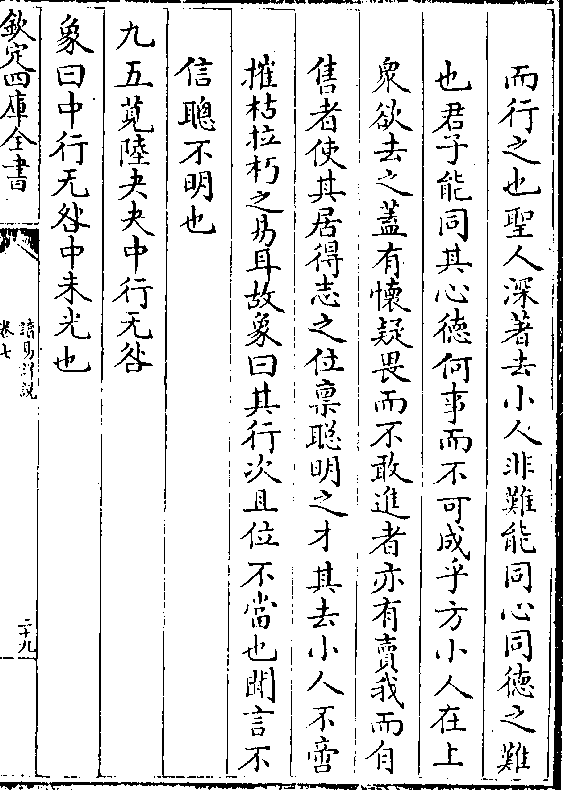 而行之也聖人深著去小人非難能同心同德之難
也君子能同其心德何事而不可成乎方小人在上
衆欲去之蓋有懷疑畏而不敢進者亦有賣我而自
售者使其居得志之位禀聰明之才其去小人不啻
摧枯拉朽之易耳故象曰其行次且位不當也聞言不
信聰不明也
九五莧陸夬夬中行无咎
象曰中行无咎中未光也
欽定四庫全書
讀易詳說
卷七
二十九